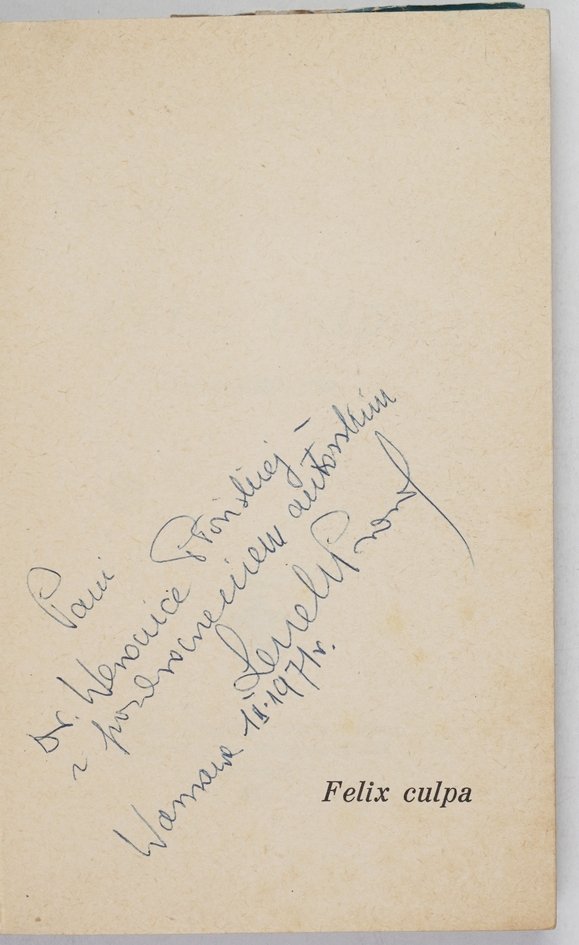 Pani
Dr. Weronice Płońskiej –
z pozdrowieniem autorskim
Leszek Prorok
Warszawa II.1971r.
Felix culpa